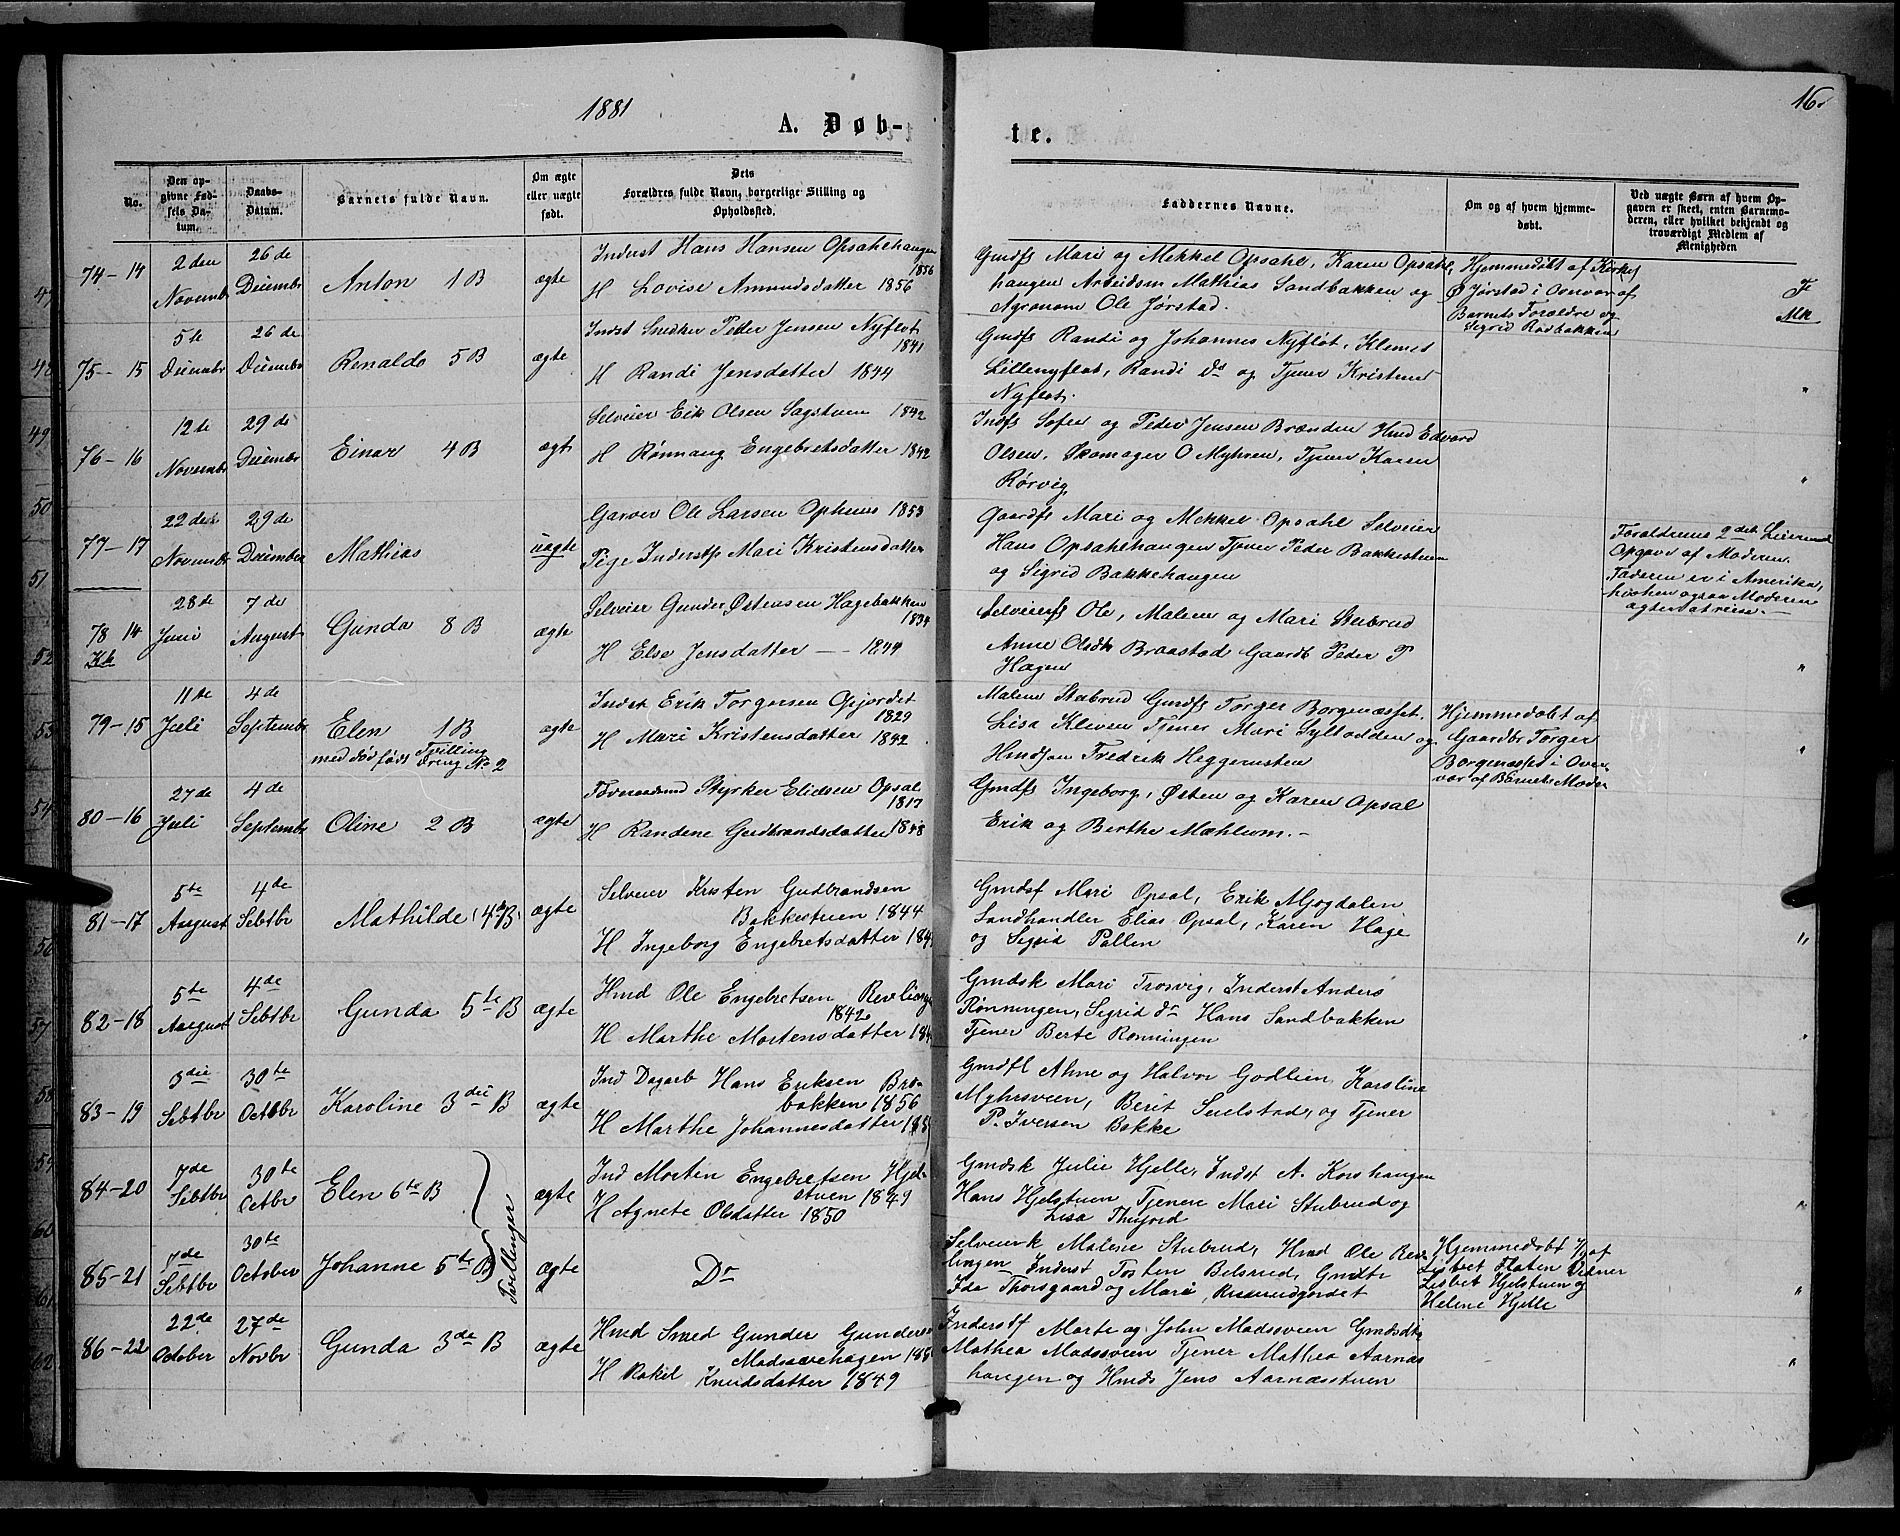 1881
16.
A. Døb-
te.
No.
Den op-
givne Fød-
sels Da-
tum.
Daabs-
Datum.
Barnets fulde Navn.
Om ægte
eller uægte
født.
Dets
Forældres fulde Navn, borgerlige Stilling og
Opholdssted.
Faddernes Navne.
Om og af hvem hjemme-
døbt.
Ved uægte Børn af hvem Op-
gaven er skeet, enten Barnemo-
deren, eller hvilket bekjendt og
troværdigt Medlem af
Menigheden
74-14
2den
Novembr
26de
Decembr
Anton 1 B
ægte
Inderst Hans Hansen Opsahlhaugen
1856
H Lovise Amundsdatter 1856
Gmdfs Mari og Mekkel Opsahl, Karen Opsahl-
haugen Arbeidsm Mathias Sandbakken og
Agronom Ole Jørstad.
Hjemmedøbt af Kirkes
Ø Jørstad i Overvær af
Barnets Forældre og
Sigrid Rødbakken
75-15
5te
Decembr
26de
Decembr
Renaldo 5 B
ægte
Indst Snedker Peder Jensen Nyfløt
1841
H Randi Jensdatter 1844
Gmdfs Randi og Johannes Nyfløt, Klemet
Lillenyfløt, Randi do og Tjener Kristine
Nyfløt.
"
76-16
12te
Novembr
29de
Decembr
Einar 4 B
ægte
Selveier Erik Olsen Sagstuen 1842
H Rønnaug Engebretsdatter 1842
Indfs Sofie og Peder Jensen Brænden Hmd Edvard
Olsen, Skomager O Myhren, Tjener Karen
Rørvig
"
77-17
22den
Novembr
29de
December
Mathias
uægte
Garver Ole Larsen Ophuus 1853
Pige Inderstp Mari Kristensdatter
Gaardfs Mari og Mekkel Opsahl Selveier
Hans Opsahlhaugen Tjener Peder Bakkestuen
og Sigrid Bakkehaugen
Forældrenes 2det Leiermaal
Opgave af Moderen.
Faderen er i Amerika,
hvorhen ogsaa Moderen
agter at reise.-
78 14
Kk
28de
Juni
7de
August
Gunda 8 B
ægte
Selveier Gunder Østensen Hagebakken
1834
H Else Jensdatter -- 1844
Selveierfs Ole, Malene og Mari Stubrud
Anne Olsdtr Braastad Gaardb Peder P
Hagen
"
79-15
11te
Juli
4de
Septembr
Elen 1 B
med dødfødt Tvilling
Dreng No 2
ægte
Indst Erik Torgersen Gjordet
1829
H Mari Kristensdatter 1842
Malene Stubrud Gmdfs Torger Borgenæsset,
Lisa Kleven Tjener Mari Sylteodden og
Hmdsøn Fredrik Heggerusten
Hjemmedøbt af
Gaardbr Torger
Borgenæsset i Over-
vær af Barnets Moder
"
80-16
27de
Juli
4de
Septembr
Oline 2 B
ægte
Styrker Eliesen Opsal
1817
H Randene Gudbrandsdatter 1848
Gmdfs Ingeborg, Østen og Karen Opsal
Erik og Berthe Mæhlum.-
81-17
5te
August
4de
Sebtbr
Mathilde 4 B
ægte
Selveier Kristen Gudbrandsen
Bakkestuen 1844
H Ingeborg Engebretsdatter 184
Gmdsf Mari Opsal, Erik Mjøgdalen
Landhandler Elias Opsal, Karen Hage
og Sigrid Pallen
"
82-18
5te
August
4de
Sebtbr
Gunda 5te B
ægte
Hmd Ole Engebretsen Revling
1842
H Marthe Mortensdatter 184
Gmdsk Mari Trosvig, Inderst Anders
Rønningen, Sigrid do Hans Sandbakken
Tjener Berte Rønningen
"
83-19
3die
Sebtbr
30te
Octbr
Karoline 3die B
ægte
Ind Dagarb Hans Eriksen Bro-
bakken 1856
H Marthe Johannesdatter 185
Gmdfl Ahne og Halvor Godlien, Karoline
Myhrsveen, Berit Suelstad, og Tjener
P. Iversen Bakke
84-20
7de
Sebtbr
30te
Octbr
Elen 6te B
ægte
Ind Morten Engebretsen Hjel-
stuen 1849
H Agnete Olsdatter 1850
Gmdsk Julie Hjelle, Indst A. Korshaugen
Hans Hjelstuen, Tjenere Mari Stubrud og
Lisa
"
85-21
7de
Sebtbr
30te
October
Johanne 5te B
Tvillinger
ægte
Do
Selveierk Malene Stubrud, Hmd Ole Rev-
lingen Inderst Tosten Belsrud, Gmdtr
Ida Thorsgaard og Mari
Hjemmedøbt af
Lisbet Flaten
Lisbet Hjelstuen og
Helene Hjelle
"
86-22
22de
October
27de
Novbr
Gunda 3de B
ægte
Hmd Smed Gunder Gunders
H Rakel Knudsdatter 1849
Inderstf Marte og John Madssveen Gmdsdtr
Mathea Madssveen Tjener Mathea Aarnæs
haugen og Hmds Jens Aarnæsstuen
"